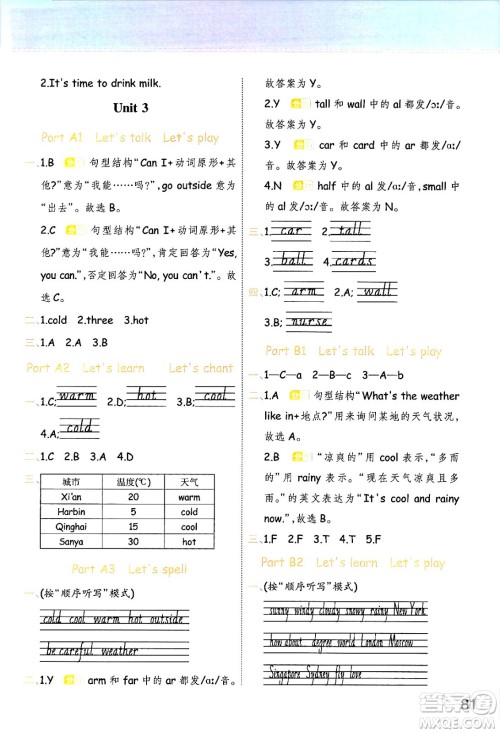 2.It's time to drink milk.
Unit 3
Part A1 Let's talk Let's play
一、1.B 句型结构“Can I+动词原形+其
他?”意为“我能……吗?”,go outside意为
“出去”。故选 B。
2.C 句型结构“Can I+动词原形+其
他?”意为“我能……吗?”,肯定回答为“Yes,
you can.”,否定回答为“No, you can't.”。故
选 C。
二、1.cold 2.three 3.hot
Part A2 Let's learn Let's chant
一、1.C; warm 2.D; hot 3.B; cool
4.A; cold
二、1.C 2.D 3.B 4.A
三、
城市 温度(℃) 天气
Xi'an 20 warm
Harbin 5 cold
Qinghai 10 cool
Sanya 30 hot
Part A3 Let's spell
一、(按“顺序听写”模式)
cold cool warm hot outside
be careful weather
二、1.Y arm 和 far 中的 ar 都发/ɑː/音。
故答案为 Y。
2.Y tall 和 wall 中的 al 都发/ɔː/音。
故答案为 Y。
3.Y car 和 card 中的 ar 都发/ɑː/
音。故答案为 Y。
4.N half 中的 al 发/ɑː/音,small 中
的 al 发/ɔː/音。故答案为 N。
三、1. car 2. tall
3. ball 4. cards
四、1.C; arm 2.A; wall
3.B; nurse
Part B1 Let's talk Let's play
一、1—c 2—b 3—a
二、1.A 句型结构“What's the weather
like in+地点?”用来询问某地的天气状况。
故选 A。
2.B “凉爽的”用 cool 表示,“多雨
的”用 rainy 表示。“今天天气凉爽且多雨”
的英文表达为“It's cool and rainy
now.”,故选 B。
三、1.F 2.F 3.T 4.T 5.F
Part B2 Let's learn Let's play
一、(按“顺序听写”模式)
sunny windy cloudy snowy rainy New York
how about. degree world London Moscow
Singapore Sydney fly love
81
答案圈
MXQE.COM